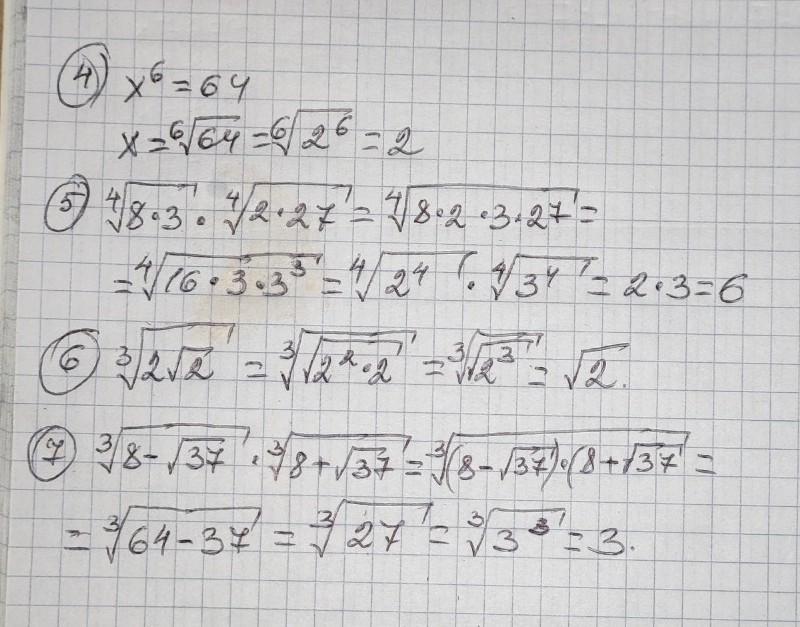 ④ x⁶ = 64
x = ⁶√64 = ⁶√2⁶ = 2
⑤ ⁴√(8·3) · ⁴√(2·27) = ⁴√(8·2·3·27) =
= ⁴√(16·3·3³) = ⁴√2⁴ · ⁴√3⁴ = 2·3 = 6
⑥ ³√(2√2) = ³√√(2²·2) = ³√√2³ = √2.
⑦ ³√(8-√37) · ³√(8+√37) = ³√((8-√37)·(8+√37) =
= ³√(64-37) = ³√27 = ³√3³ = 3.